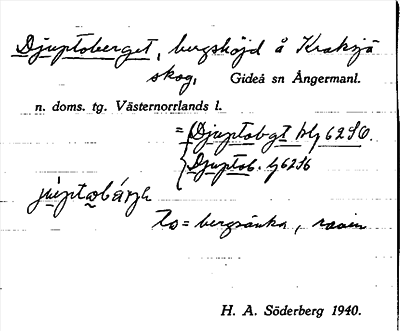 Djuptoberget, bergshöjd å Kraksjö
skog, Gideå sn Ångermanl.
n. doms. tg. Västernorrlands l.
= { Djuptobgt
Djuptob.
To = bergsänka, ravin
H. A. Söderberg 1940.